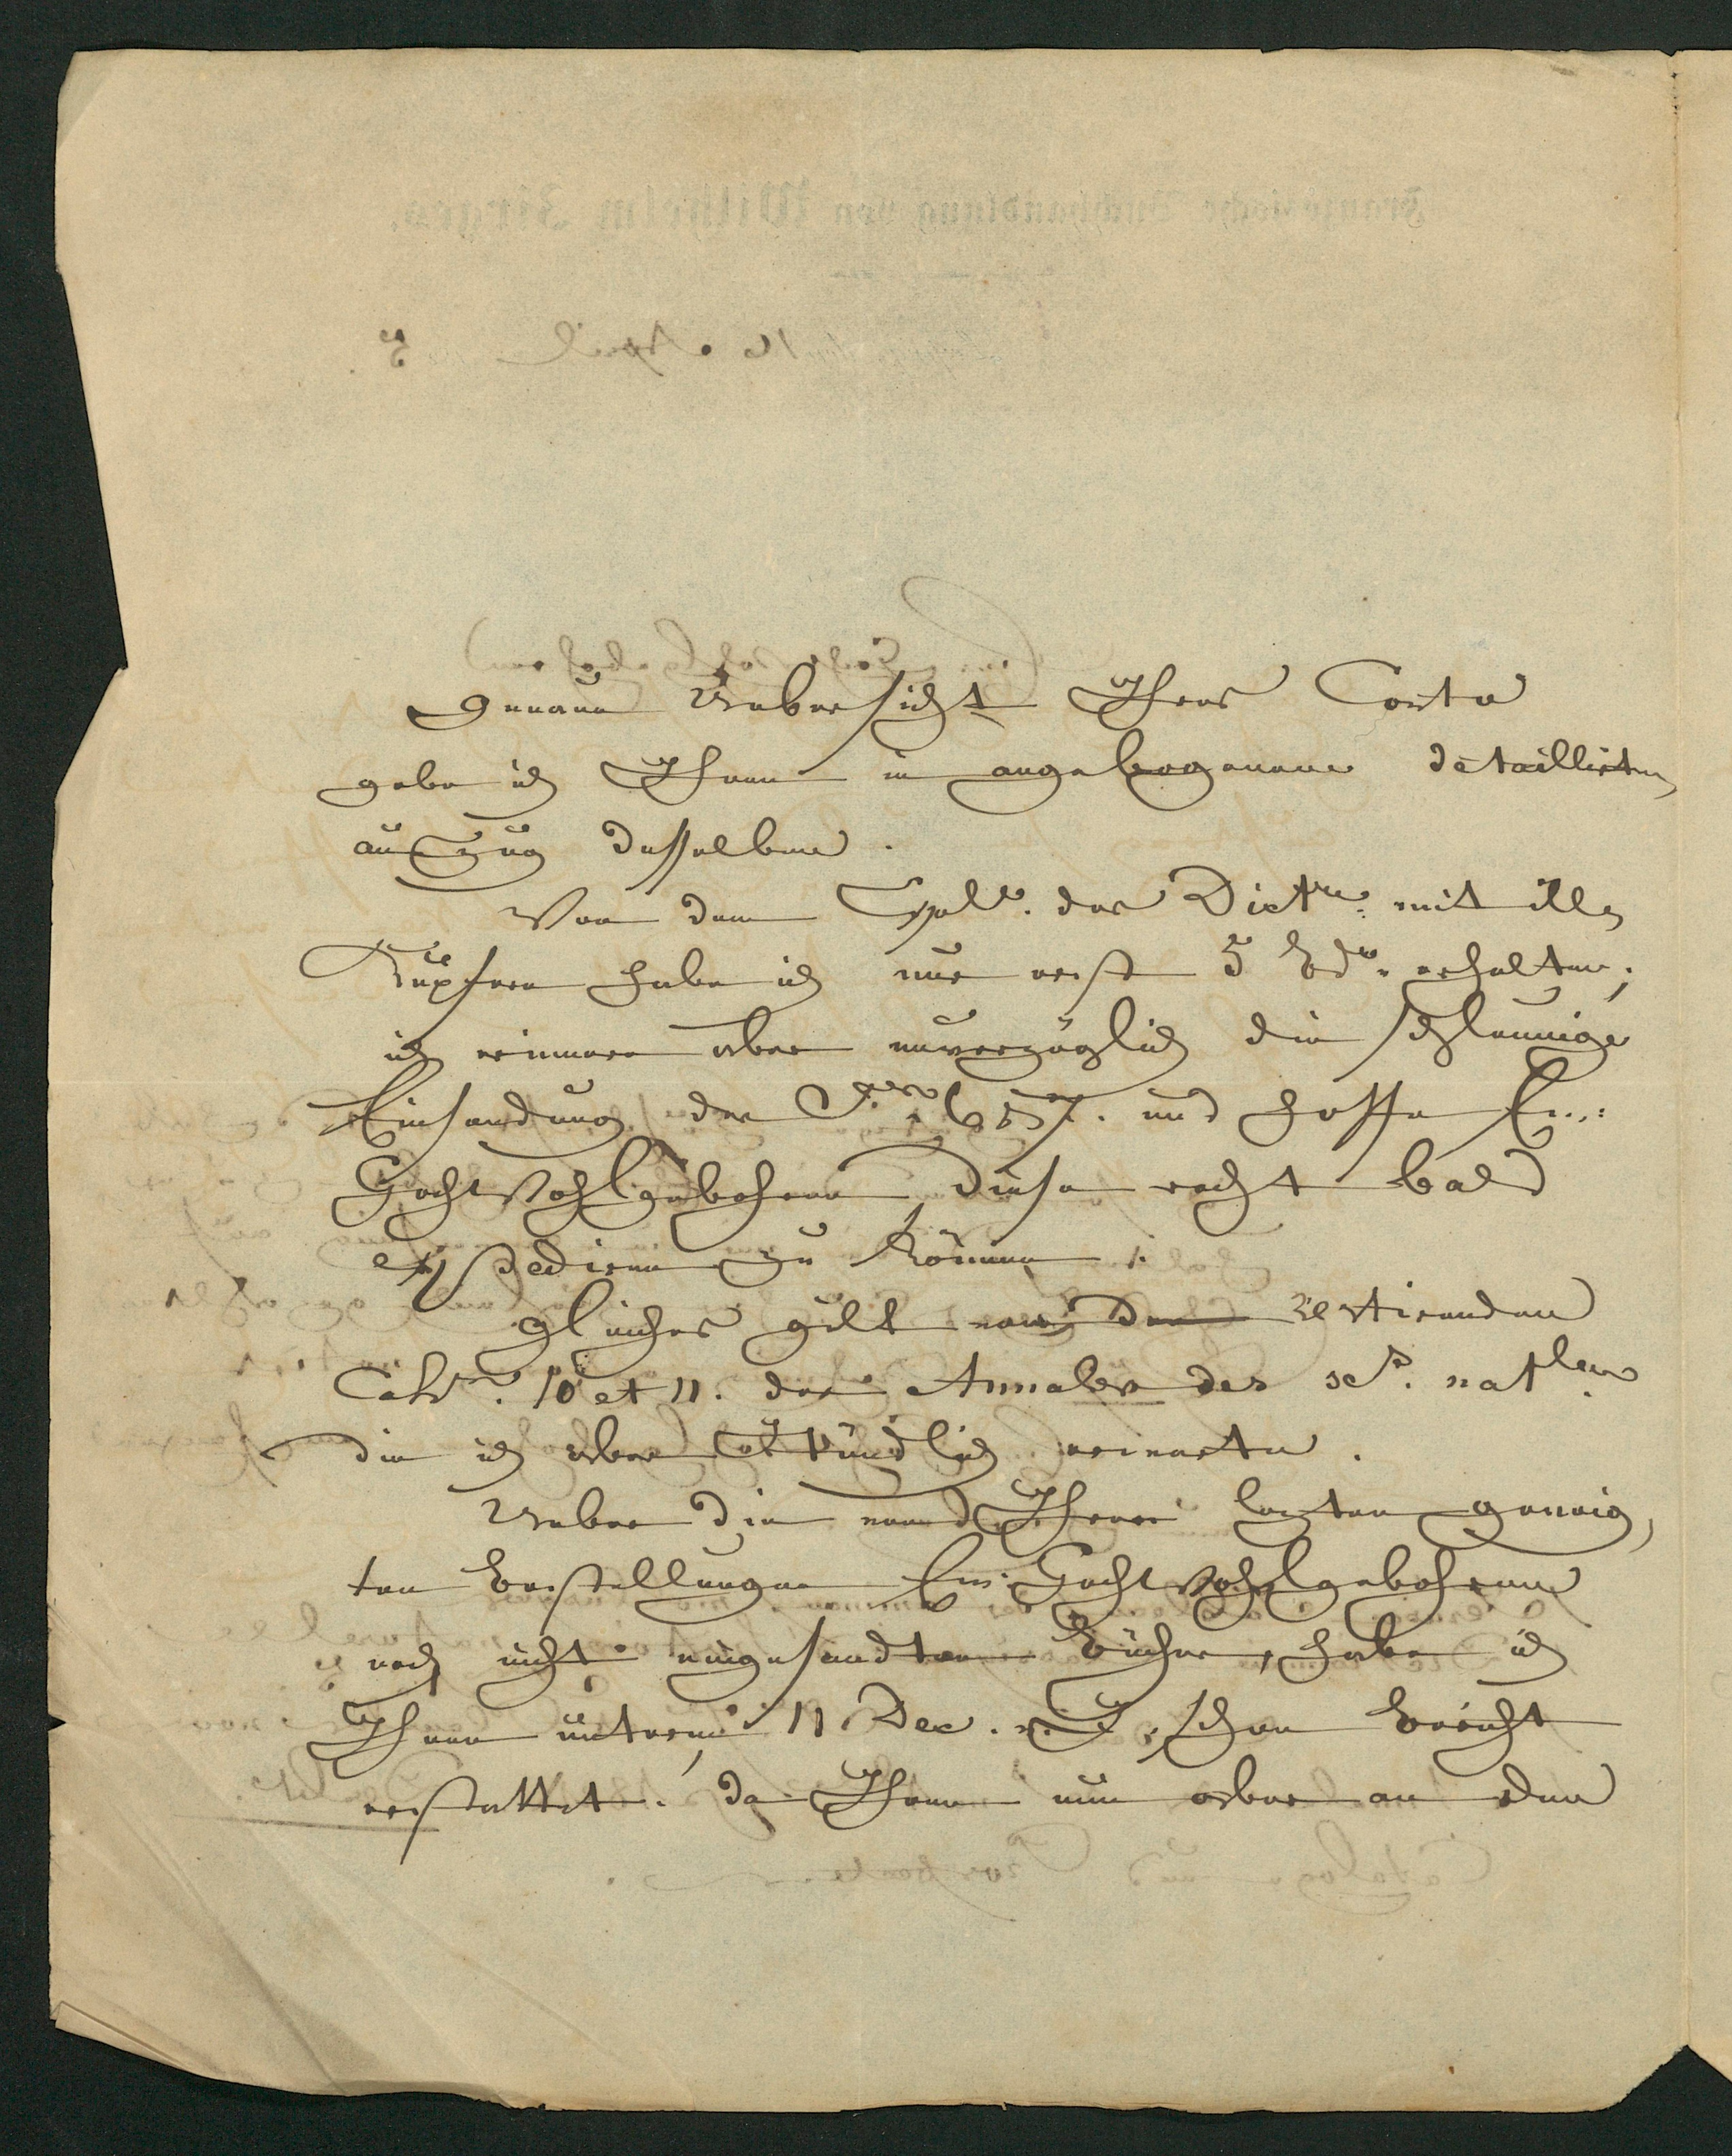 genaue Uebersicht Ihres Conto
gebe ich Ihnen in angebogenem detaillirten
Auszug desselben.
Von dem Expl. des Dict. mit ill.
Kupfern habe ich nur erst 5 Bde. erhalten;
ich erinnere aber unverzüglich die schleunige
Einsendung der 6 & 7. und hoffe Ew.:
Hochwohlgebohren diese recht bald
expediren zu können.
Gleiches gilt von den restirenden
Cahr. 10 et 11. der Annales des sc. natlles
die ich aber stündlich erwarte.
Ueber die von Ihren letzten geneig-
ten Bestellungen Ew: Hochwohlgebohren
noch nicht eingesandten Bücher, habe ich
Ihnen unterm 11. Dec. v. J. schon Bericht
erstattet. Da Ihnen nun aber an den